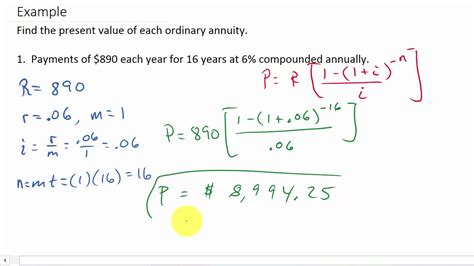 Example
Find the present value of each ordinary annuity.
1. Payments of $890 each year for 16 years at 6% compounded annually.
P = R [ 1-(1+i)^-n / i ]
R = 890
r = .06, m = 1
i = r/m = .06/1 = .06
P = 890 [ 1-(1+.06)^-16 / .06 ]
n = mt = (1)(16) = 16
P = $ 8,994.25